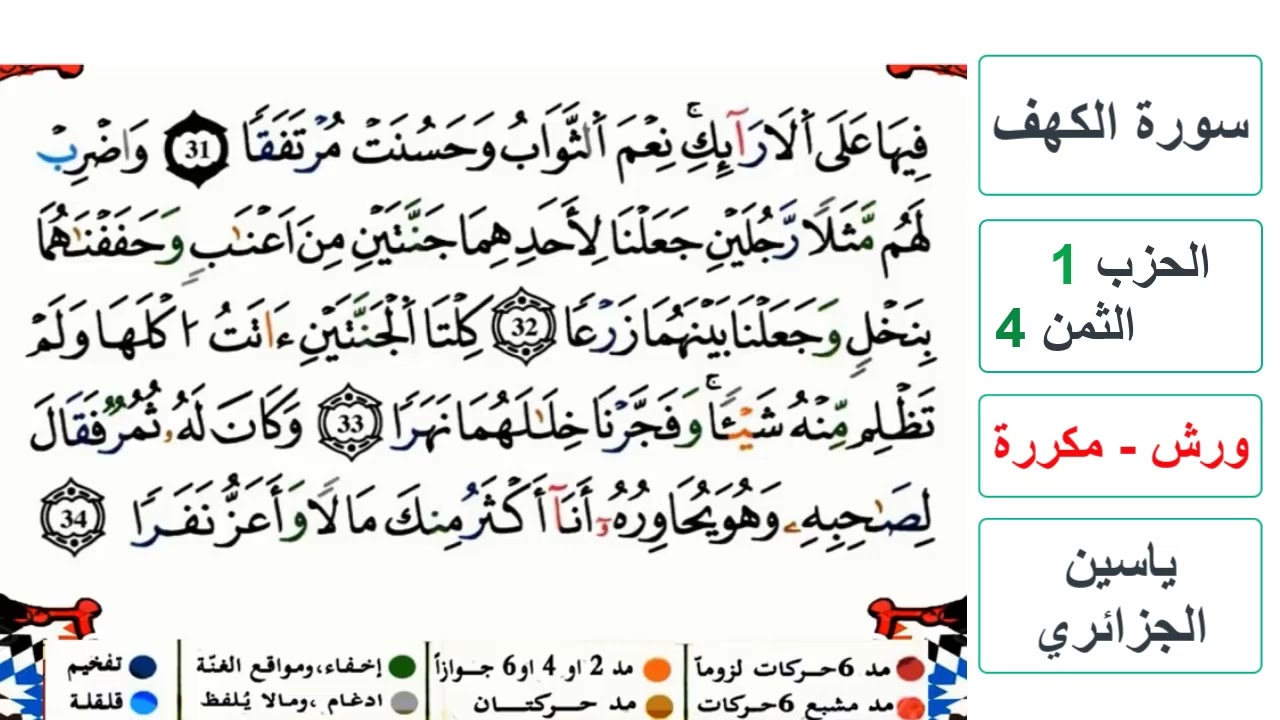 فِيهَا عَلَى اَ۬لَارَآئِكِۖ نِعْمَ اَ۬لثَّوَابُ وَحَسُنَتْ مُرْتَفَقاٗ 31 وَاضْرِبْ
لَهُم مَّثَلاٗ رَّجُلَيْنِ جَعَلْنَا لِأَحَدِهِمَا جَنَّتَيْنِ مِنَ اَعْنَٰبٖ وَحَفَفْنَٰهُمَا
بِنَخْلٖ وَجَعَلْنَا بَيْنَهُمَا زَرْعاٗ 32 كِلْتَا اَ۬لْجَنَّتَيْنِ ءَاتَتُ ا۟كْلَهَا وَلَمْ
تَظْلِم مِّنْهُ شَيْـٔاٗۖ وَفَجَّرْنَا خِلَٰلَهُمَا نَهَراٗ 33 وَكَانَ لَهُۥ ثُمُرٞ فَقَالَ
لِصَٰحِبِهِۦ وَهُوَ يُحَاوِرُهُۥٓ أَنَآ أَكْثَرُ مِنكَ مَالاٗ وَأَعَزُّ نَفَراٗ 34
سورة الكهف
الحزب 1
الثمن 4
ورش - مكررة
ياسين
الجزائري
مد 6 حركات لزوماً
مد 2 او 4 او 6 جوازاً
إخفاء، ومواقع الغنّة
تفخيم
مد مشبع 6 حركات
مد حركتان
ادغام، ومالا يُلفظ
قلقلة